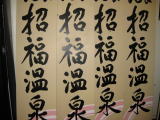 招福温泉
招福温泉
招福温泉
招福温泉